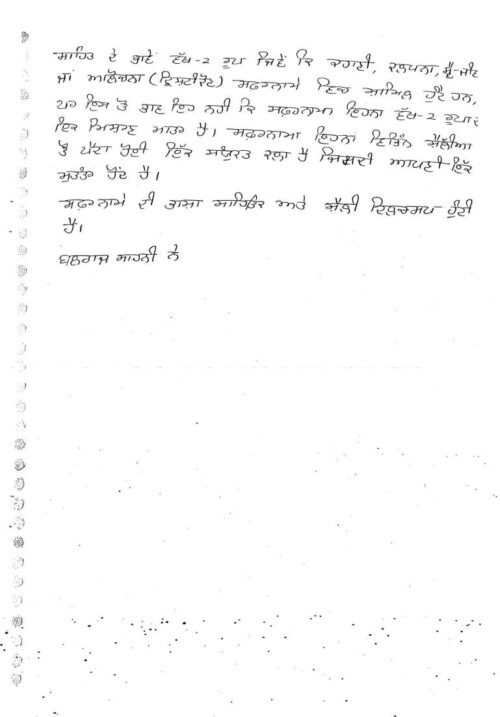 ਸਾਹਿਤ ਦੇ ਭਾਵੇਂ ਵੱਖ-2 ਰੂਪ ਜਿਵੇਂ ਕਿ ਕਹਾਣੀ, ਕਲਪਨਾ,
ਜਾਂ ਆਲੋਚਨਾ ( ਸਫ਼ਰਨਾਮੇ ਵਿਚ ਸ਼ਾਮਿਲ ਹੁੰਦੇ ਹਨ,
ਪਰ ਇਸ ਤੋਂ ਭਾਵ ਇਹ ਨਹੀਂ ਕਿ ਸਫ਼ਰਨਾਮਾ ਇਹਨਾ ਵੱਖ-2 ਰੂਪਾਂ
ਇਕ ਮਿਸ਼ਰਣ ਮਾਤਰ ਹੈ। ਸਫ਼ਰਨਾਮਾ ਇਹਨਾਂ ਵਿਭਿੰਨ ਸ਼ੈਲੀਆ
ਤੋਂ ਪੈਦਾ ਹੋਈ ਇੱਕ ਸੰਯੁਕਤ ਕਲਾ ਹੈ ਜਿਸਦੀ ਆਪਣੀ ਇੱਕ
ਸੁਤੰਤਰ ਹੋਂਦ ਹੈ।
ਸਫ਼ਰਨਾਮੇ ਦੀ ਭਾਸ਼ਾ ਸਾਹਿਤਿਕ ਅਤੇ ਸ਼ੈਲੀ ਦਿਲਚਸਪ ਹੁੰਦੀ
ਹੈ।
ਬਲਰਾਜ ਸਾਹਨੀ ਨੇ